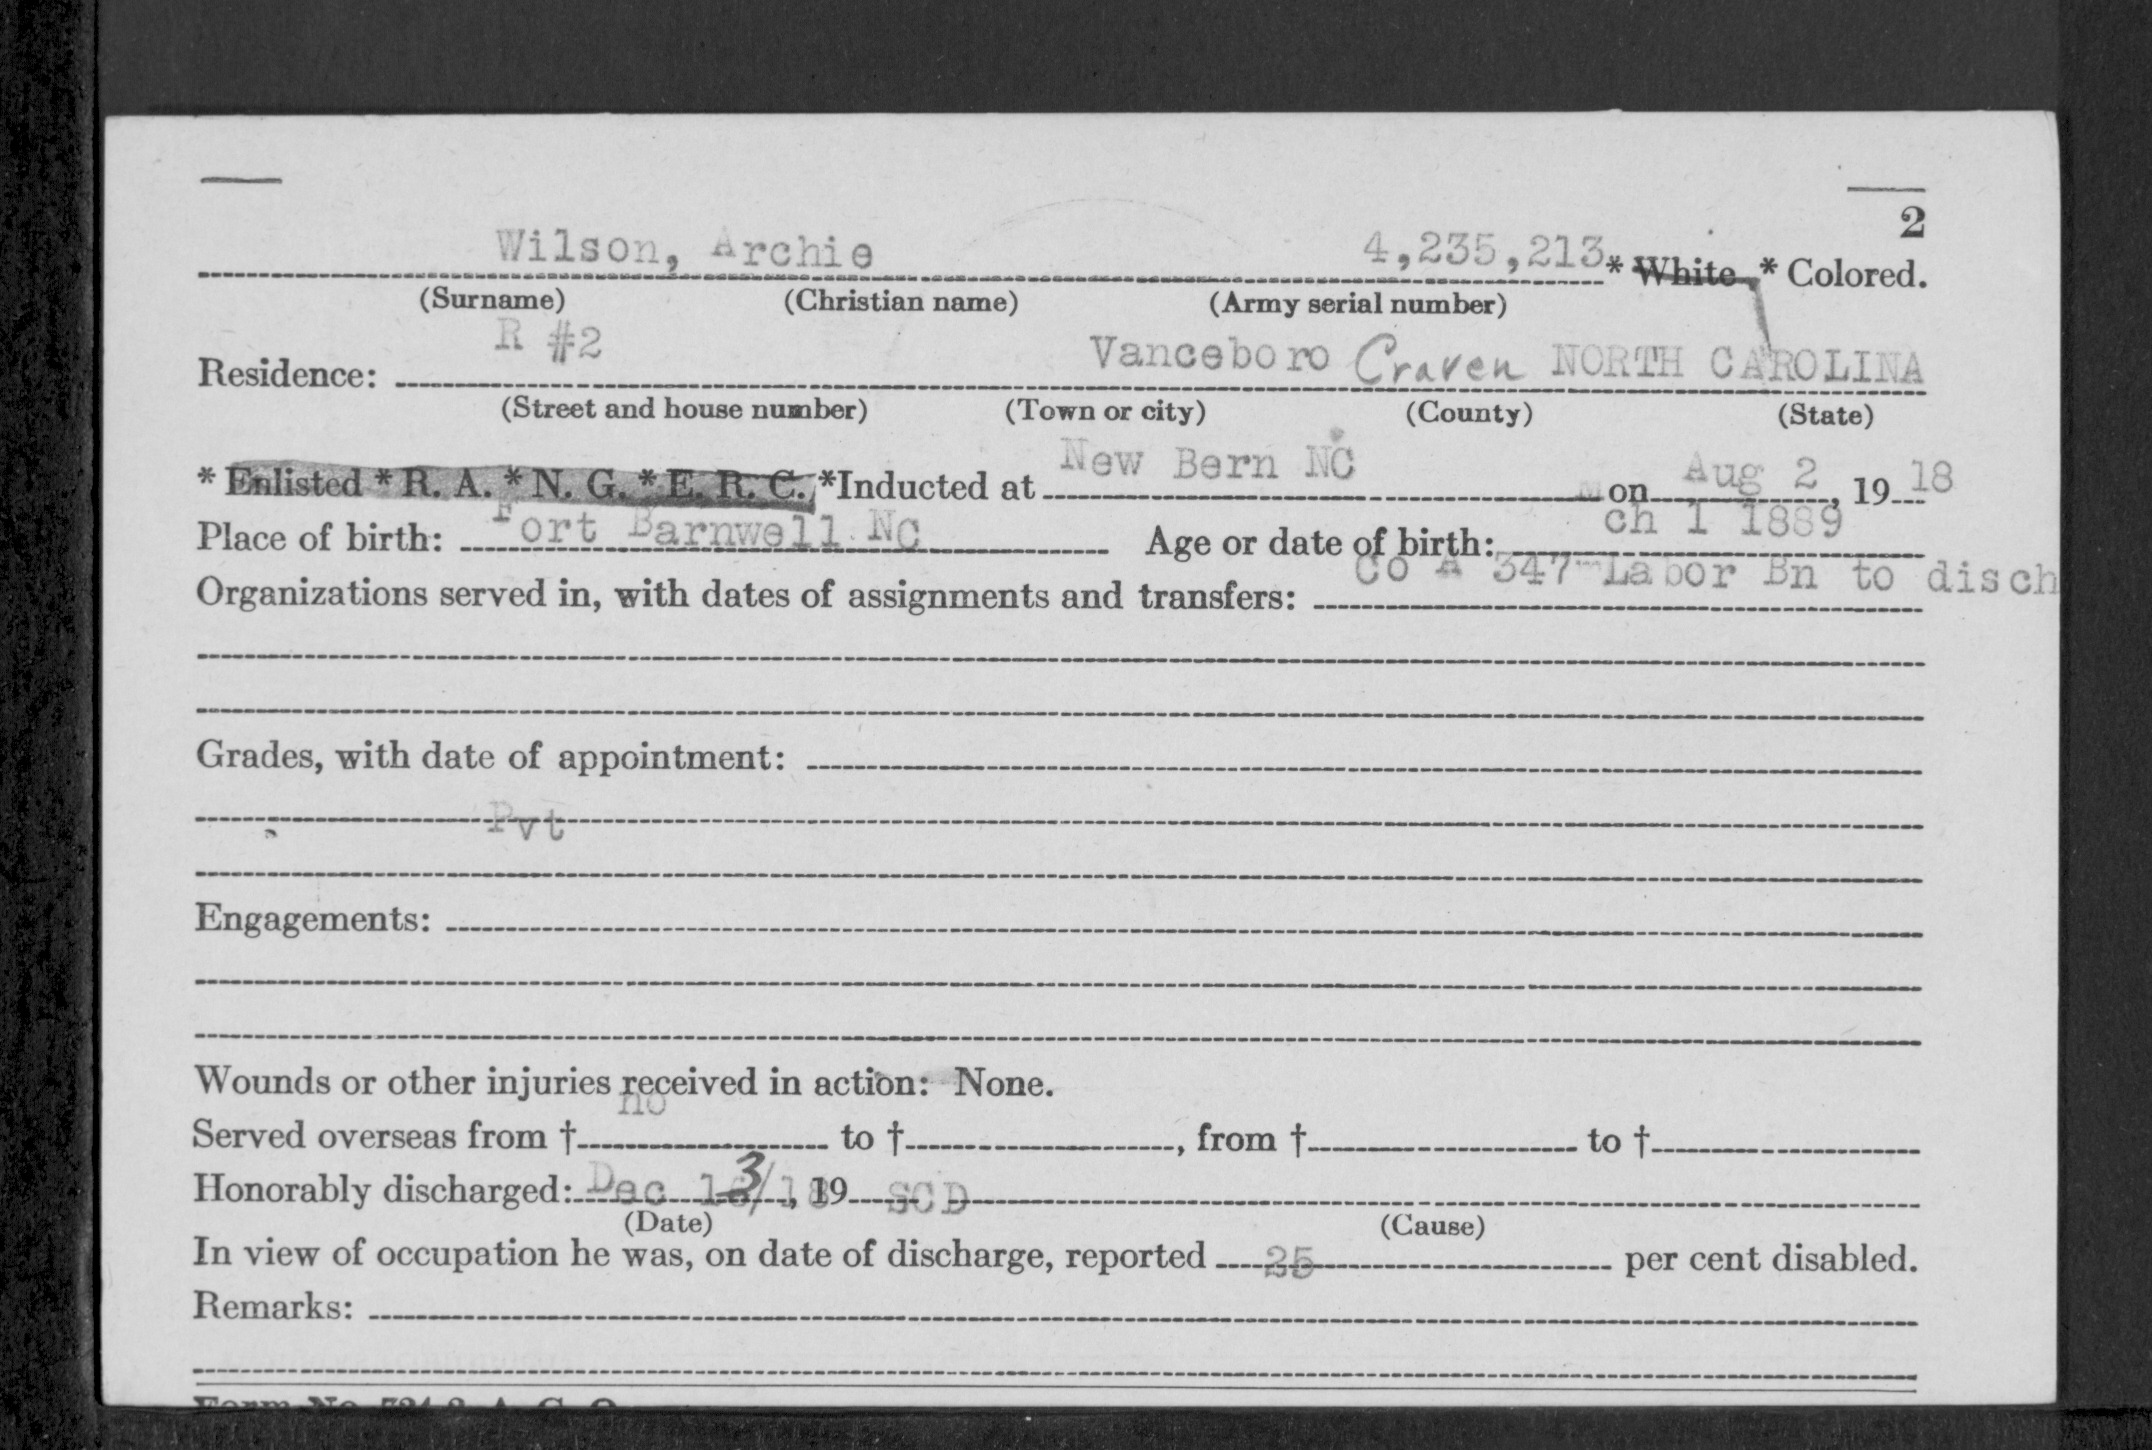 2
Wilson, Archie 4,235,213 * White * Colored.
(Surname) (Christian name) (Army serial number)
R #2 Vanceboro Craven NORTH CAROLINA
Residence:
(Street and house number) (Town or city) (County) (State)
* Enlisted * R. A. * N. G. * E. R. C. *Inducted at New Bern NC on Aug 2, 19 18
Place of birth: Fort Barnwell NC Age or date of birth: Mch 1 1889
Organizations served in, with dates of assignments and transfers: Co A 347 Labor Bn to disch
Grades, with date of appointment:
Pvt
Engagements:
Wounds or other injuries received in action: None.
Served overseas from † no to †, from † to †
Honorably discharged: Dec 13/18, 19 SCD
(Date) (Cause)
In view of occupation he was, on date of discharge, reported 25 per cent disabled.
Remarks:
Form No. 724-2 A. G. O.